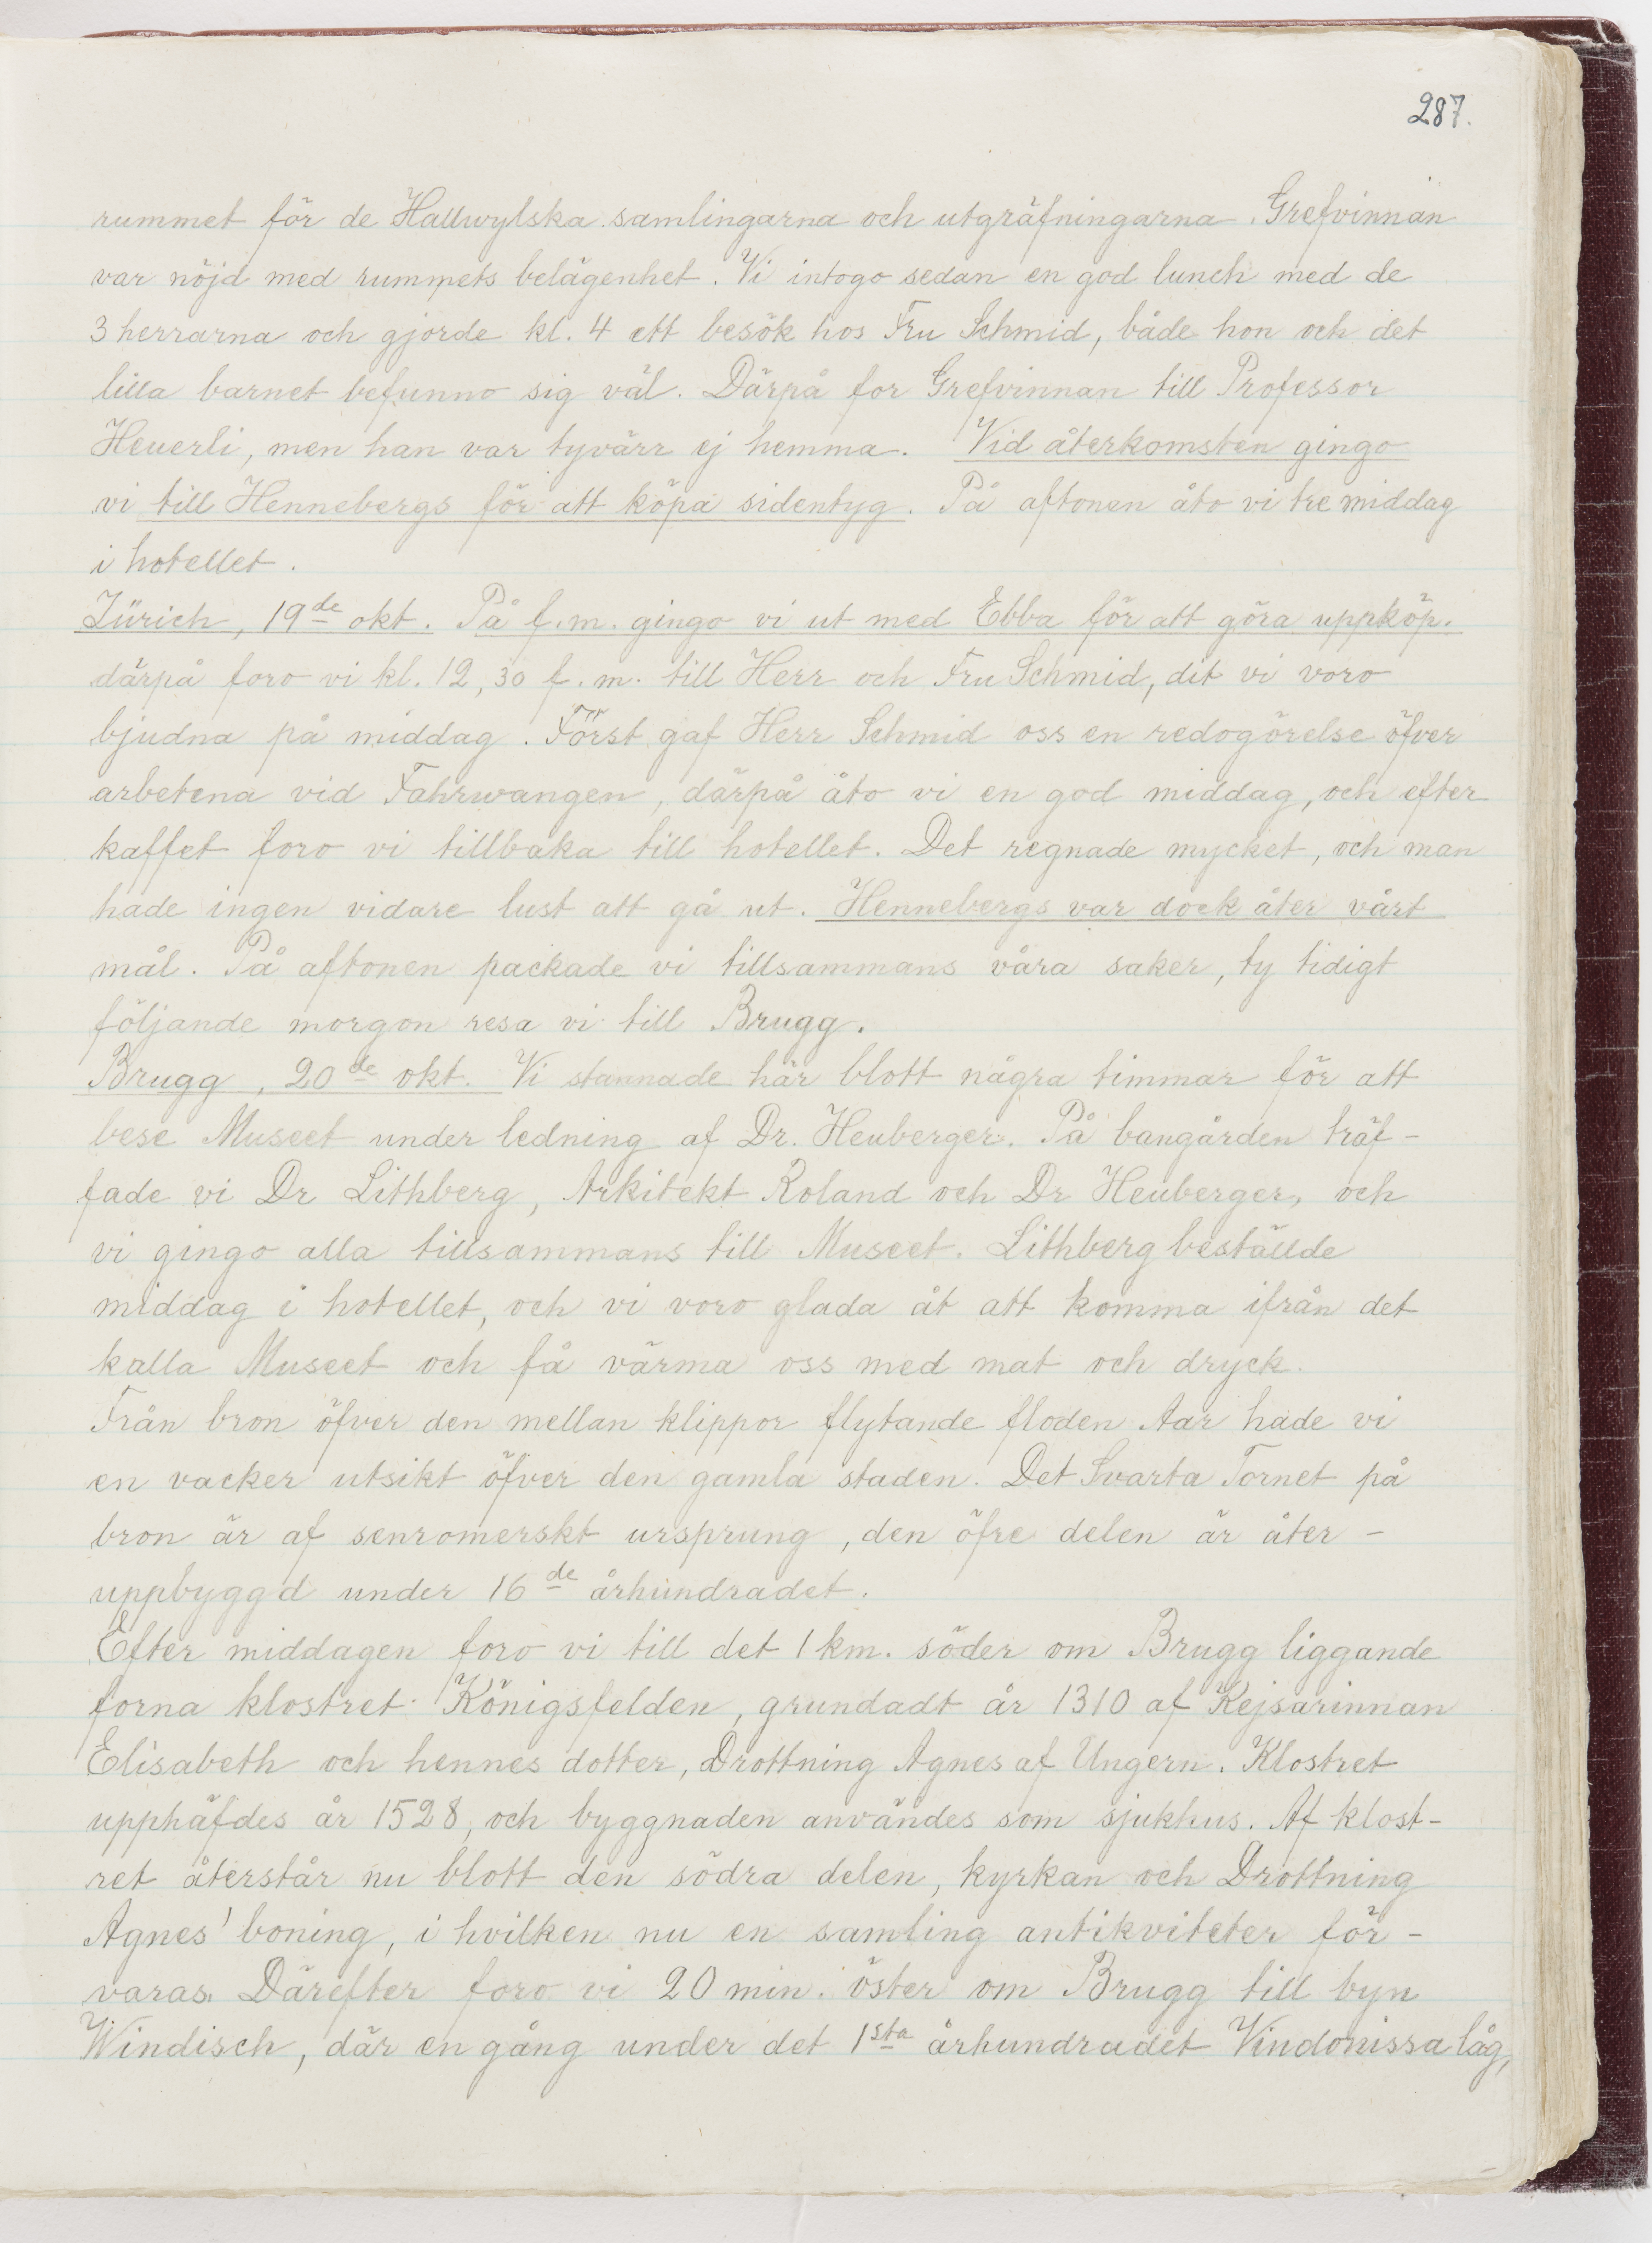 287.
rummet för de Hallwylska samlingarna och utgräfningarna. Grefvinnan
var nöjd med rummets belägenhet. Vi intogo sedan en god lunch med de
3 herrarna och gjorde kl. 4 ett besök hos Fru Schmid, både hon och det
lilla barnet befunno sig väl. Därpå for Grefvinnan till Professor
Heuerli, men han var tyvärr ej hemma. Vid återkomsten gingo
vi till Hennebergs för att köpa sidentyg. På aftonen åto vi tre middag
i hotellet.
Zürich, 19de okt. På f.m. gingo vi ut med Ebba för att göra uppköp.
därpå foro vi kl. 12,30 f.m. till Herr och Fru Schmid, dit vi voro
bjudna på middag. Först gaf Herr Schmid oss en redogörelse öfver
arbetena vid Fahrwangen, därpå åto vi en god middag, och efter
kaffet foro vi tillbaka till hotellet. Det regnade mycket, och man
hade ingen vidare lust att gå ut. Hennebergs var dock åter vårt
mål. På aftonen packade vi tillsammans våra saker, ty tidigt
följande morgon resa vi till Brugg.
Brugg, 20de okt. Vi stannade här blott några timmar för att
bese Museet under ledning af Dr. Heuberger. På bangården träf-
fade vi Dr Lithberg, Arkitekt Roland och Dr Heuberger, och
vi gingo alla tillsammans till Museet. Lithberg beställde
middag i hotellet, och vi voro glada åt att komma ifrån det
kalla Museet och få värma oss med mat och dryck.
Från bron öfver den mellan klippor flytande floden Aar hade vi
en vacker utsikt öfver den gamla staden. Det Svarta Tornet på
bron är af senromerskt ursprung, den öfre delen är åter-
uppbyggd under 16de århundradet.
Efter middagen foro vi till det 1 km. söder om Brugg liggande
forna klostret Königsfelden, grundadt år 1310 af Kejsarinnan
Elisabeth och hennes dotter, Drottning Agnes af Ungern. Klostret
upphäfdes år 1528, och byggnaden användes som sjukhus. Af klost-
ret återstår nu blott den södra delen, kyrkan och Drottning
Agnes' boning, i hvilken nu en samling antikviteter för-
varas. Därefter foro vi 20 min. öster om Brugg till byn
Windisch, där en gång under det 1sta århundradet Vindonissa låg,